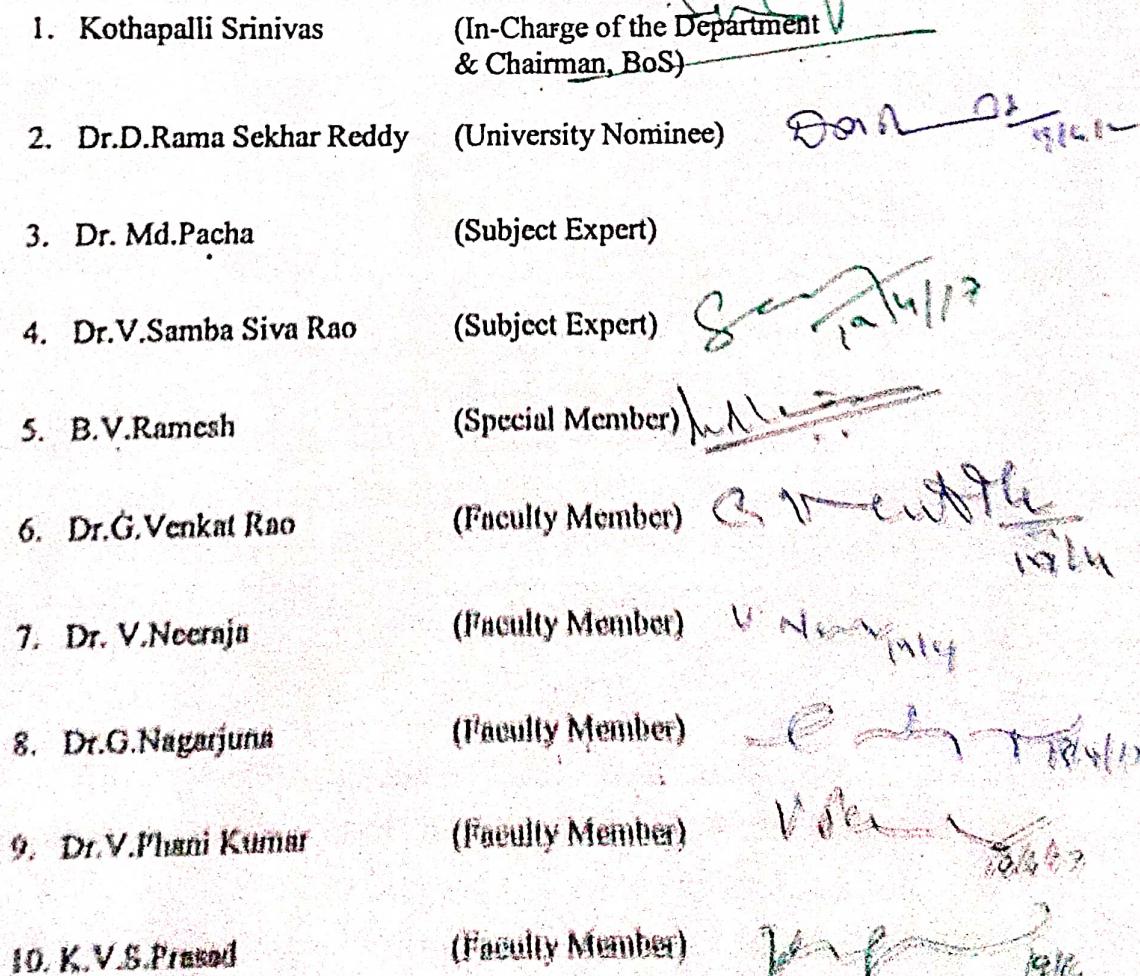 1. Kothapalli Srinivas (In-Charge of the Department
& Chairman, BoS)
2. Dr.D.Rama Sekhar Reddy (University Nominee)
3. Dr. Md.Pacha (Subject Expert)
4. Dr.V.Samba Siva Rao (Subject Expert) 19/4/17
5. B.V.Ramesh (Special Member)
6. Dr.G.Venkat Rao (Faculty Member)
19/4
7. Dr. V.Neeraja (Faculty Member) 19/4
8. Dr.G.Nagarjuna (Faculty Member)
9. Dr.V.Phani Kumar (Faculty Member)
10. K.V.S.Prasad (Faculty Member)